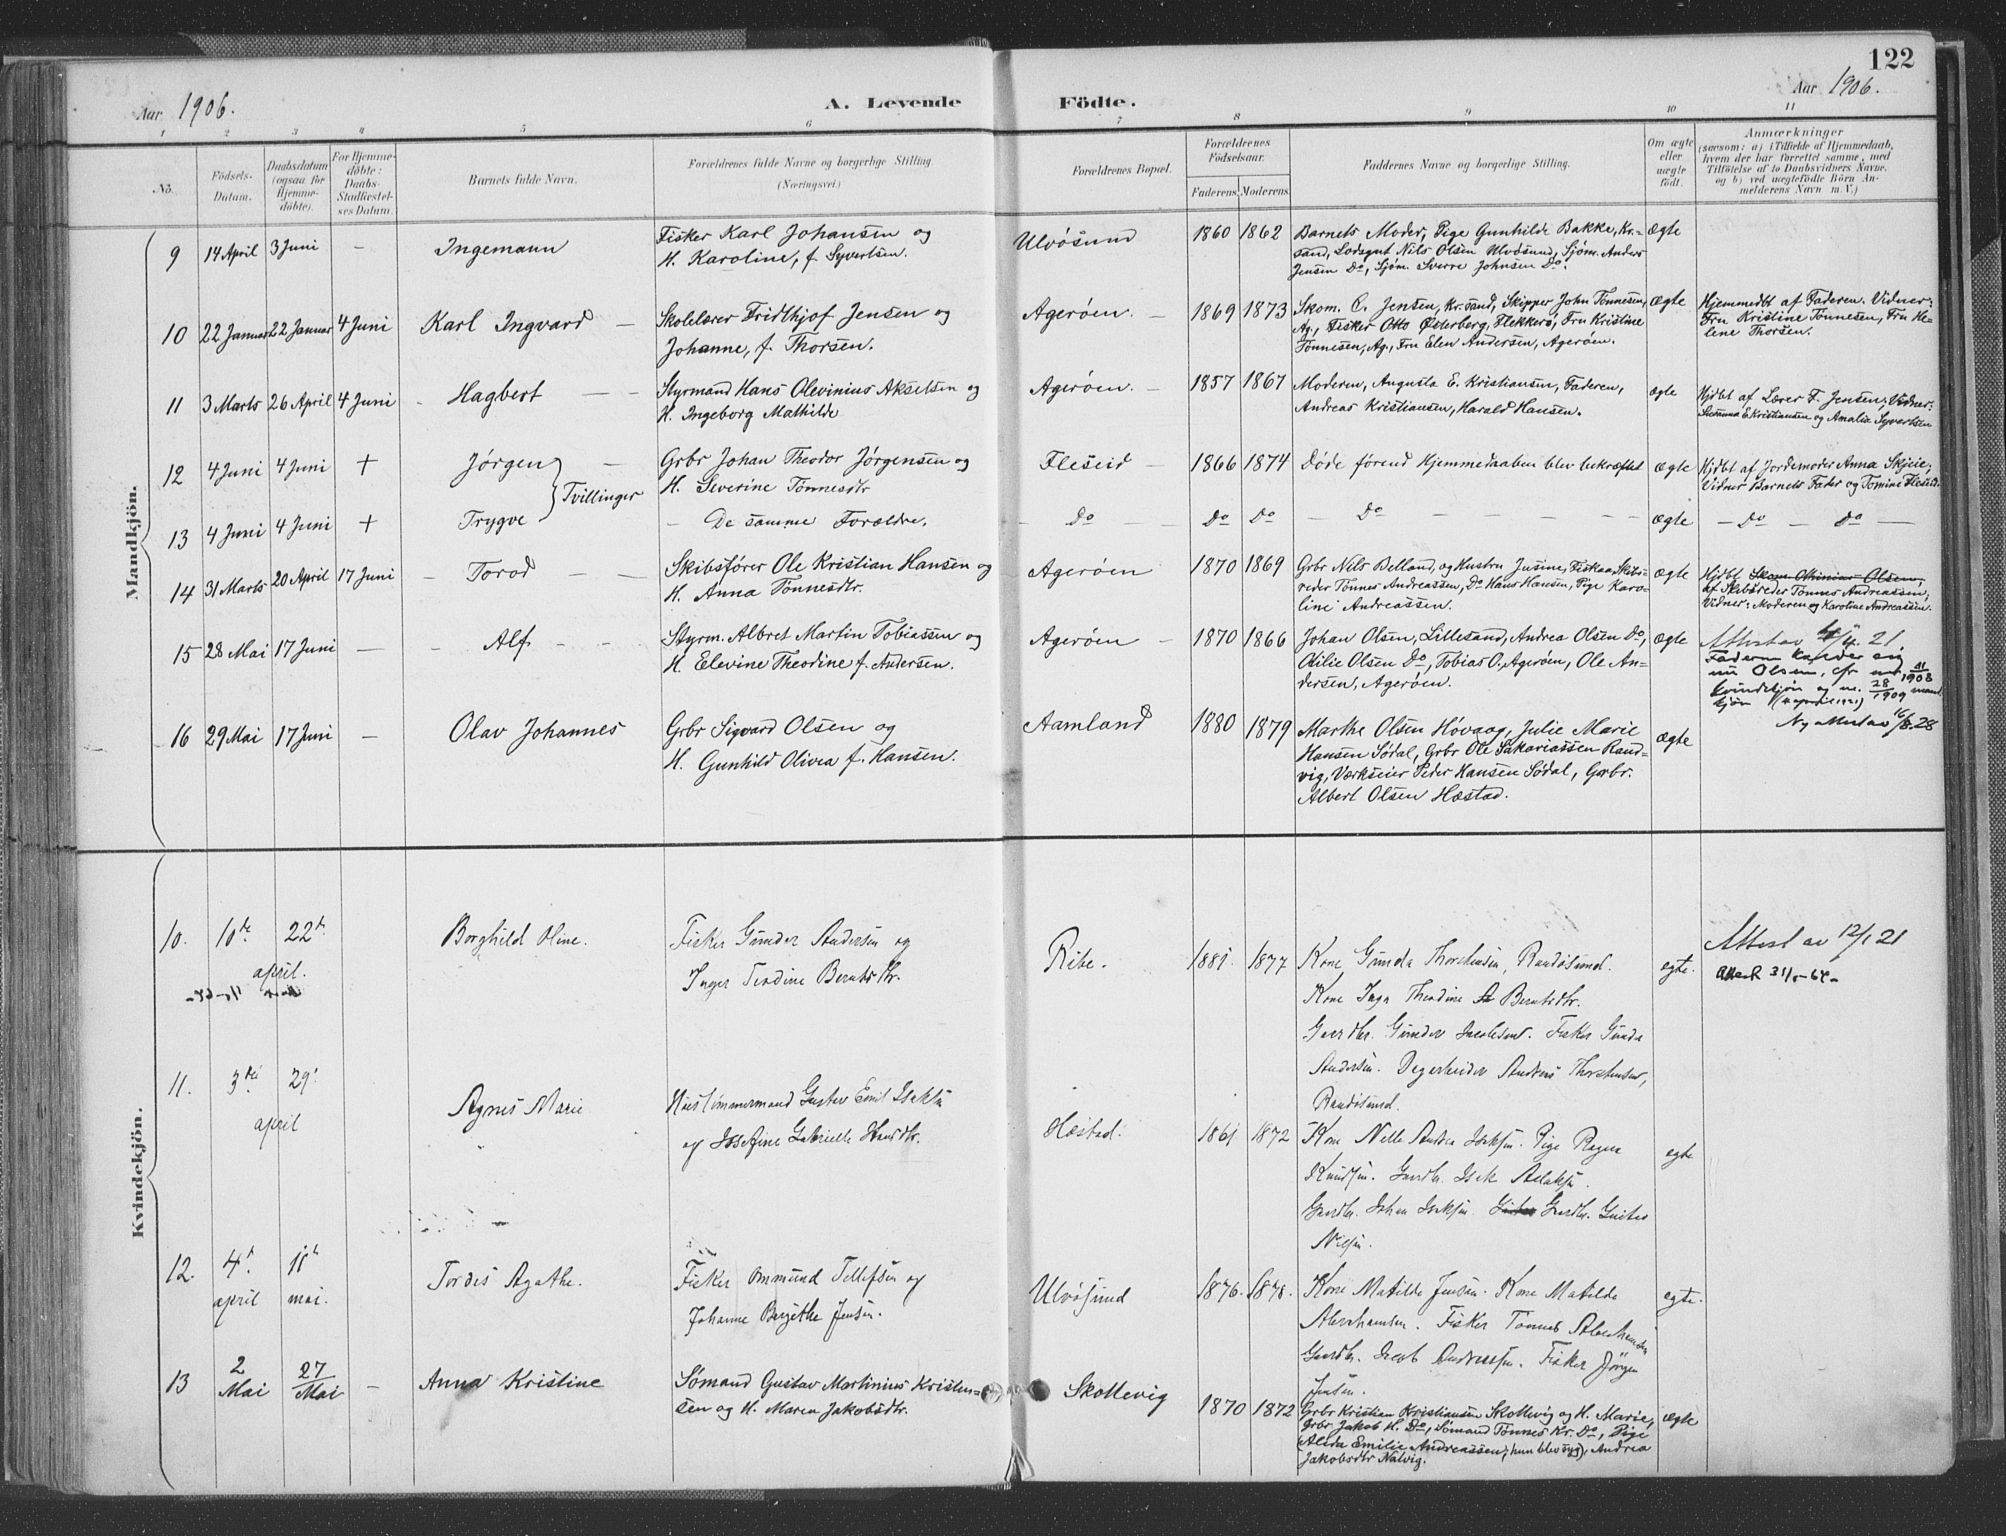 122
Aar 1906.
A. Levende Födte.
Aar 1906.
1 2 3 4 5 6 7 8 9 10 11
No.
Födsels-Datum.
Daabsdatum (ogsaa for Hjemme-döbte).
For Hjemme-döbte: Daabs-Stadfæstel-ses Datum.
Barnets fulde Navn.
Forældrenes fulde Navne og borgerlige Stilling. (Næringsvei.)
Forældrenes Bopæl.
Forældrenes Födselsaar.
Faderens. Moderens.
Faddernes Navne og borgerlige Stilling.
Om ægte eller uægte födt.
Anmærkninger
(saasom: a) i Tilfælde af Hjemmedaab, hvem der har forrettet samme, med Tilföielse af to Daabsvidners Navne, og b) ved uægtefödte Börn An-melderens Navn m. V.)
Mandkjön.
9 14 April 3 Juni – Ingemann
Fisker Karl Johansen og
H. Karoline, f. Syvertsen.
Ulvøsund 1860 1862
Barnets Moder, Pige Gunhilde Bakke, Kr.-
sand, Lodsgut Nils Olsen Ulvøsund, Sjøm. Anders
Jensen Do, Sjøm. Sverre Johnsen Do.
Ægte
10 22 Januar 22 Januar 4 Juni Karl Ingvard –
Skolelærer Fridthjof Jensen og
Johanne, f. Thorsen.
Agerøen. – 1869 1873
Skom. C. Jensen, Kr.sand, Skipper John Tønnesen,
Ag., Fisker Otto Østerberg, Flekkerø, Fru Kristine
Tønnesen, Ag., Fru Elen Andersen, Agerøen.
Ægte
Hjemmedbt af Faderen. Vidner:
Fru Kristine Tønnesen, Fru He-
lene Thorsen.
11 3 Marts 26 April 4 Juni – Hagbert – –
Styrmand Hans Olevinius Akselsen og
H. Ingeborg Mathilde
Agerøen. – 1857 1867
Moderen, Augusta E. Kristiansen, Faderen,
Andreas Kristiansen, Harald Hansen.
ægte
Hjdbt af Lærer F. Jensen. Vidner:
E Kristiansen og Amalia Syvertsen
12 4 Juni 4 Juni + Jørgen –
Tvillinger
Grbr Johan Theodor Jørgensen og
H. Severine Tønnesdtr
Fleseid – 1866 1874
Døde førend Hjemmedaaben blev bekræftet
ægte
Hjdbt af Jordemoder Anna Skjeie,
Vidner Barnets Fader og Tomine Fleseid.
13 4 Juni 4 Juni + Trygve
– De samme Forældre.
– Do – Do Do – Do – – – –
ægte – Do – Do –
14 31 Marts 20 April 17 Juni – Torod – –
Skibsfører Ole Kristian Hansen og
H. Anna Tønnesdtr.
Agerøen 1870 1869
Grbr Nils Belland, og Hustru Jusine, Skibs-
reder Tønnes Andreassen, Do Hans Hansen, Pige Karo-
line Andreassen.
ægte
Hjdbt Skom. Olsen,
af Skibsreder Tønnes Andreassen,
Vidner: Moderen og Karoline Andreassen.
15 28 Mai 17 Juni – – Alf – –
Styrm. Albret Martin Tobiassen og
H. Elevine Theodine f. Andersen.
Agerøen – 1870 1866
Johan Olsen, Lillesand, Andrea Olsen Do,
Otilie Olsen Do, Tobias O. Agerøen, Ole An-
dersen, Agerøen.
ægte
Attest av 21
Faderen kalder sig
nu Olsen, cfr nr. 11/1908
kvindekjøn og nr. 28/1909 mand
kjøn
Ny attest av 16/8.28
16 29 Mai 17 Juni – Olav Johannes
Grbr Sigvard Olsen og
H. Gunhild Olivea f. Hansen.
Aamland 1880 1879
Marthe Olsen Høvaag, Julie Marie
Hansen Sødal, Grbr Ole Sakariassen Rand-
vig, Værkseier Peder Hansen Sødal, Grbr.
Albert Olsen Hæstad.
ægte
Kvindekjön.
10. 10de 22d april. Borghild Oline.
Fisker Gunder Andersen og
Inger Teodine Berntsdtr.
Ribe. 1881. 1877
Kone Gunda Thorstensen, Randøsund.
Kone Inga Theodine Berntsdtr.
Gaardbr. Gunder Jacobsen. Fisker Gunder
Andersen. Andreas Thorstensen,
Randøsund.
egte.
Attest av 12/1 21
Attest 31/5-64-
11. 3die 29. april Agnes Marie
Hustømmermand Gustav Emil Isaksen
og Josefine Gabrielle Hansdtr.
Hæstad. 1861 1872
Kone Nelle Andrea Isaksen. Pige Ragna
Knudsen. Gaardbr. Isak Aslaksen.
Gaardbr. Johan Isaksen. Gaardbr. Gustav
Nielsen.
egte
12. 4d april 11d mai. Tordis Agathe.
Fisker Ommund Tellefsen og
Johanne Bergithe Jensen.
Ulvøsund 1876. 1878.
Kone Matilde Jensen. Kone Matilde
Abrahamsen. Fisker Tønnes Abrahamsen
Gaardbr. Jacob Andreassen. Fisker Jørgen
Jensen.
egte.
13 2 Mai 27 Mai – Anna Kristine
Sømand Gustav Martinius Kristen-
sen og H. Maren Jakobsdtr.
Skottevig 1870 1872
Grbr Kristian Kristiansen Skottevig og H. Marie,
Grbr Jakob H. Do, Sømand Tønnes Kr. Do, Pige
(Alida Emilie Andreassen; hun blev syg), Andrea
Jakobsdtr Nalvig.
ægte